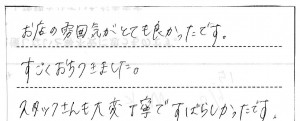 お店の雰囲気がとても良かったです。
すごくおちつきました。
スタッフさんも大変丁寧ですばらしかったです。